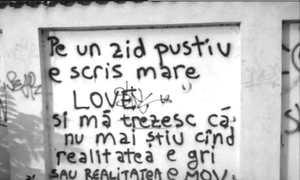 Pe un zid pustiu
e scris mare
LOVE
și mă trezesc că
nu mai știu cînd
realitatea e gri
SAU REALITATEA e MOV